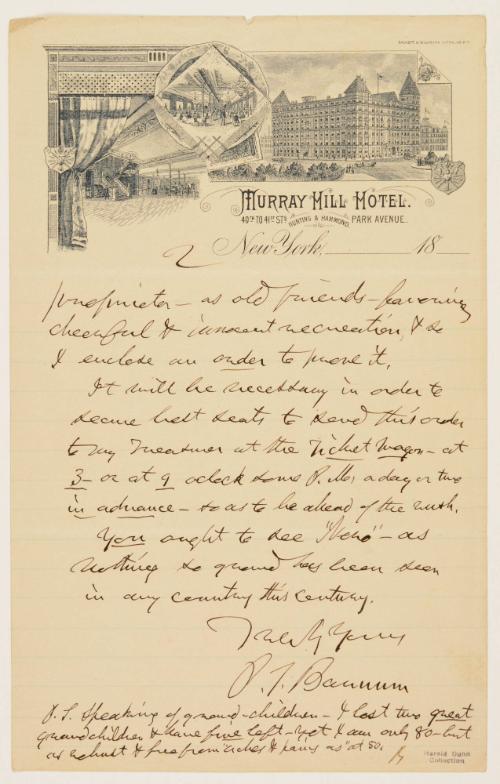 MURRAY HILL HOTEL.
40TH TO 41ST STS HUNTING & HAMMOND, PARK AVENUE.
2 New York, 18
proprietor – as old friends – favoring
cheerful & innocent recreation, & so
I enclose an order to prove it.
It will be necessary in order to
secure best seats to send this order
to my Treasurer at the Ticket Wagon – at
3 – or at 9 oclock some P.M. a day or two
in advance – so as to be ahead of the rush.
You ought to see "Nero" – as
Nothing so grand has been seen
in any country this century.
Truly Yours
P. T. Barnum
P.S. Speaking of grand-children – I lost two great
grandchildren & have five left – yet I am only 80 – but
as robust & free from aches & pains as at 50.
Harold Dunn
Collection